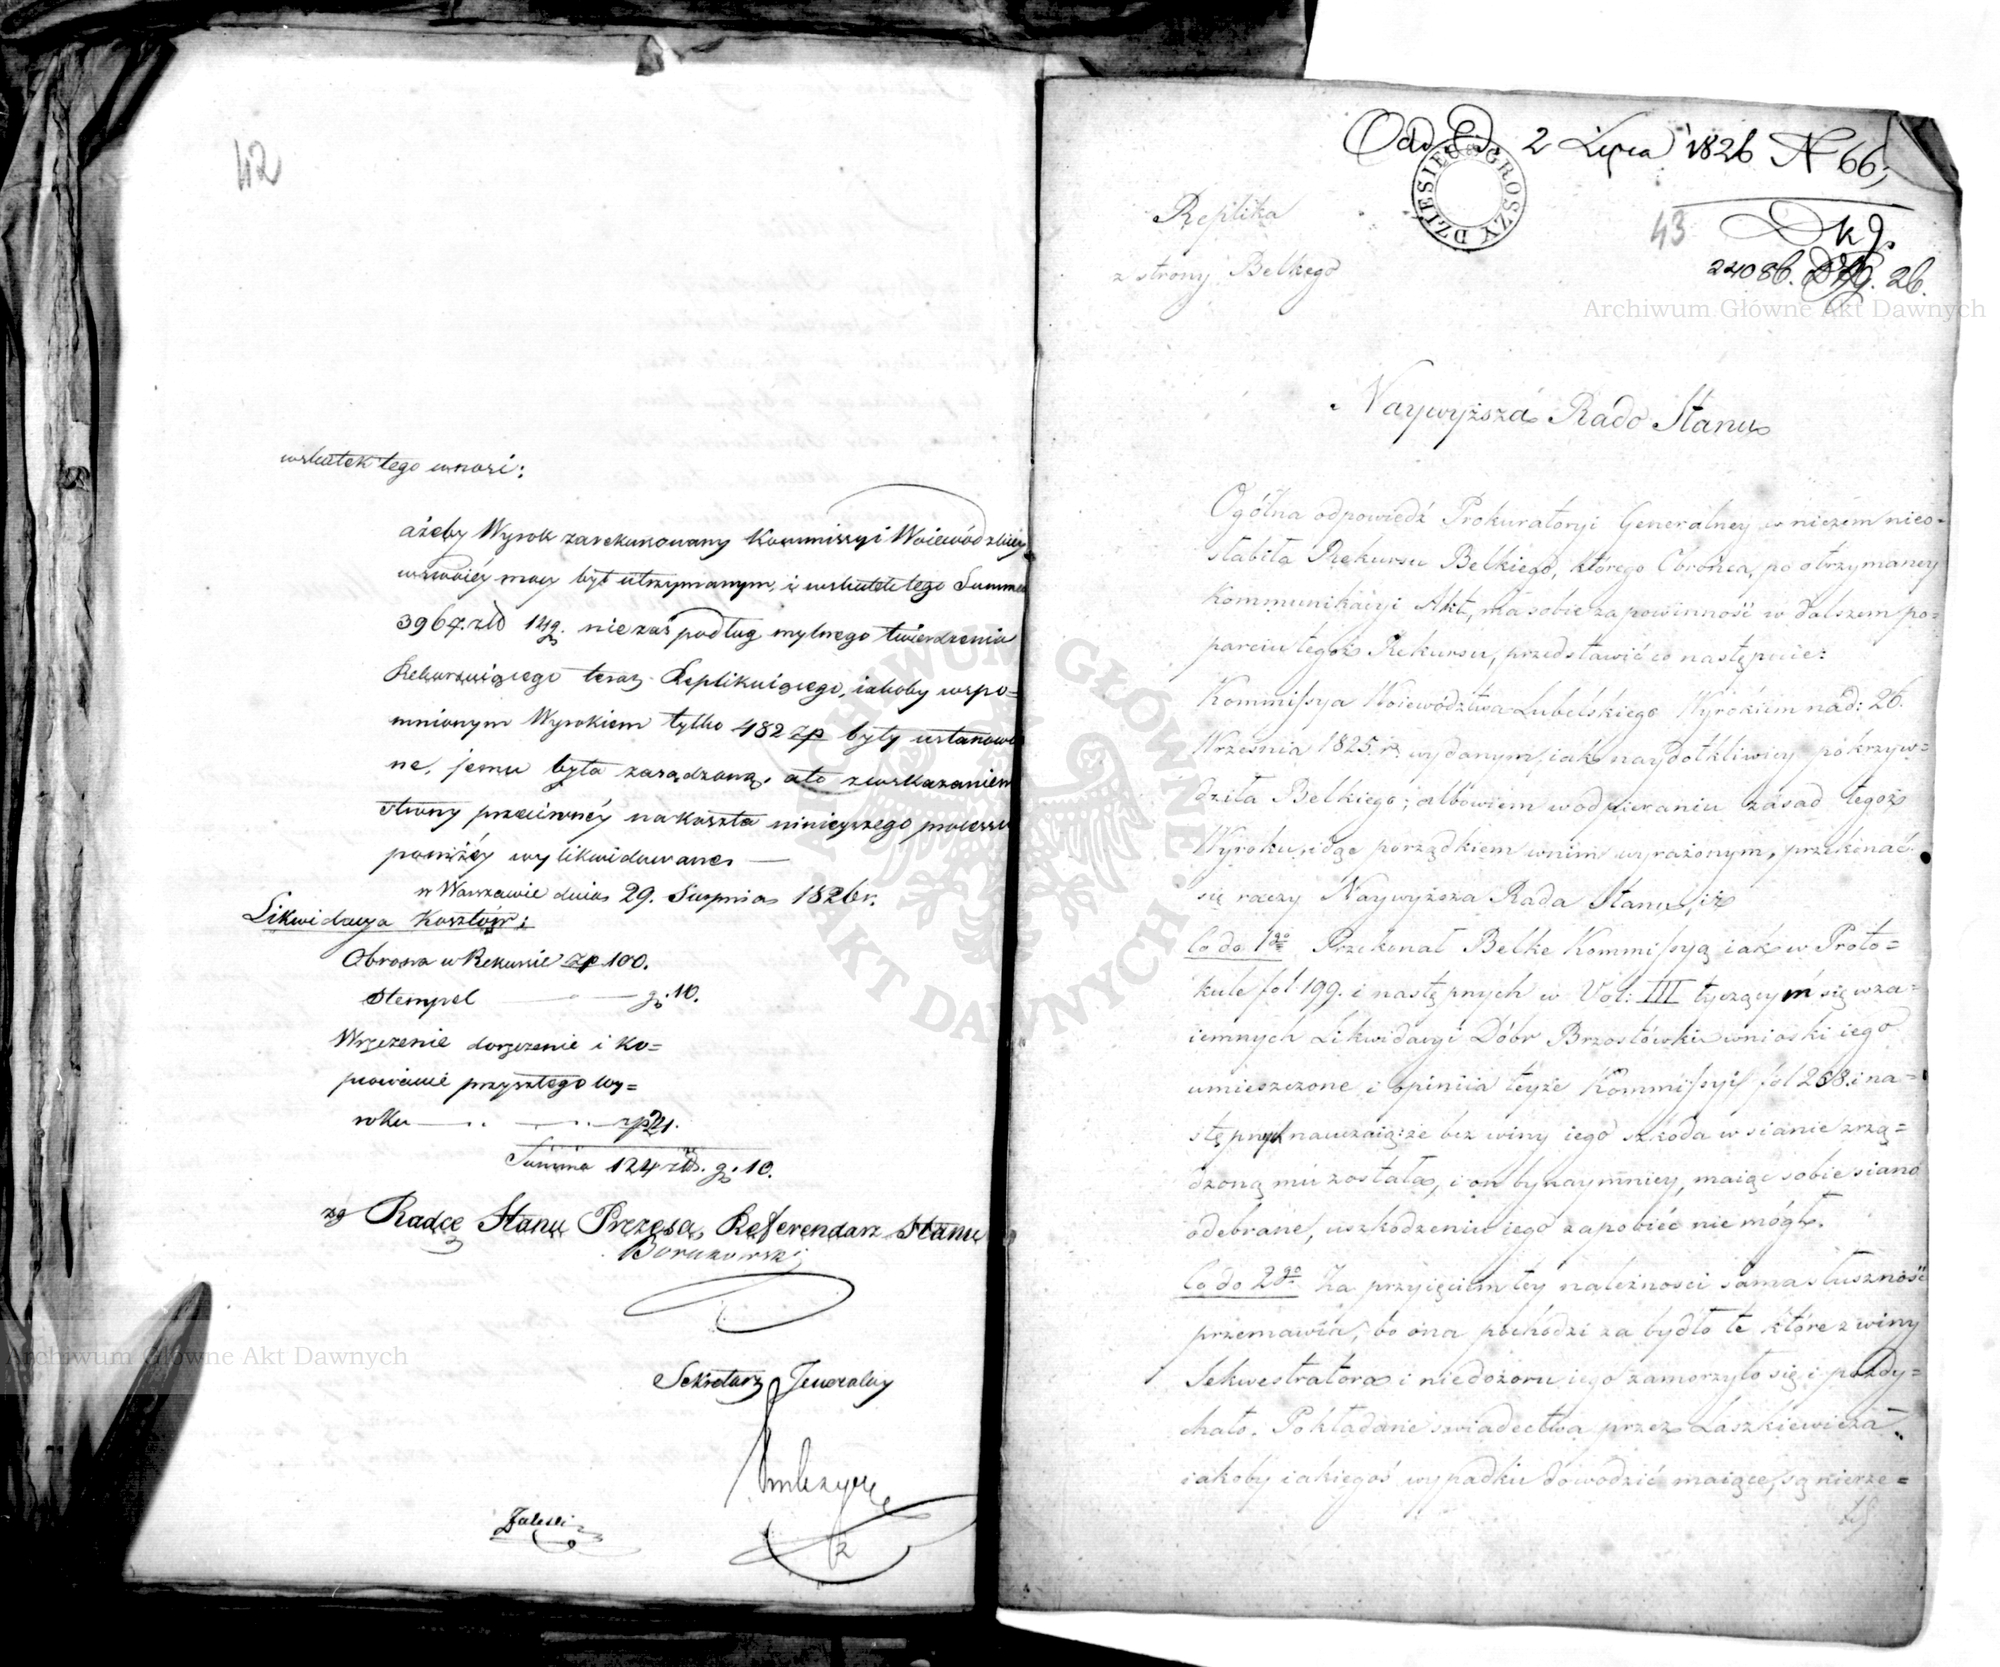 42
wskutek tego wnosi:
ażeby Wyrok zarekurowany Kommissyi Woiewódzkiey
w swoiéy mocy był utrzymanym, i wskutek tego Summa
3967. złp 14g. nie zaś podług mylnego twierdzenia
Rekurruiącego teraz Replikuiącego, iakoby wspo=
mnionym Wyrokiem tylko 482 zp były ustanowio
ne, jemu była zasądzoną. a to z wskazaniem
strony przeciwnéy na koszta ninieyszego processu
poniżéy wylikwidowane. —
w Warszawie dnia 29. Sierpnia 1826 r.
Likwidacya Kosztów:
Obrona w Rekursie zp 100.
Stempel — — g. 10.
Wręczenie doręczenie i ko=
piowanie przyszłego wy=
roku — zp 24.
Summa 124 złp. g. 10.
za Radcę Stanu Prezesa, Referendarz Stanu
Sekretarz Jeneralny
Zaleski
Odd. 2 Lipca 1826 N 66,
DZIESIĘĆ GROSZY
43
Dkg.
22086. 26.
Replika
z strony Belkego
Naywyższa Rado Stanu
Ogólna odpowiedź Prokuratoryi Generalney w niczém nieo=
słabiła Rekursu Belkiego, którego Obrońca, po otrzymaney
Kommunikacyi Akt, ma sobie za powinność w dalszem po=
parciu tegoż Rekursu, przedstawić co następuie:
Kommissya Woiewództwa Lubelskiego Wyrokiem nad: 26.
Września 1825. r. wydanym, iak naydotkliwiey pokrzyw=
dziła Belkiego; albowiem w odpieraniu zasad tegoż
Wyroku, idąc porządkiem w nim wyrażonym, przekonać
się raczy Naywyższa Rada Stanu, iż
Co do 1go Przekonał Belke Kommissyą iak w Proto=
kule fol. 199. i następnych w Vol: III tyczącym się wza=
iemnych Likwidacyi Dóbr Brzostówki wnioski iego
umieszczone i opiniia teyże Kommissyi fol 268. i na=
stępnych nauczaią: że bez winy iego szkoda w sianie zrzą=
dzoną mu została, i on bynaymniey, maiąc sobie siano
odebrane, uszkodzeniu iego zapobiéc nie mógł.
Co do 2go Za przyięciem tey należności sama słuszność
przemawia, bo ona pochodzi za bydło te które z winy
Sekwestratora i niedozoru iego zamorzyło się i pozdy=
chało. Pokładane świadectwa przez Laszkiewicza
iakoby iakiegoś wypadku dowodzić maiące, są nierze=
Archiwum Główne Akt Dawnych
Archiwum Główne Akt Dawnych
ARCHIWUM GŁÓWNE AKT DAWNYCH